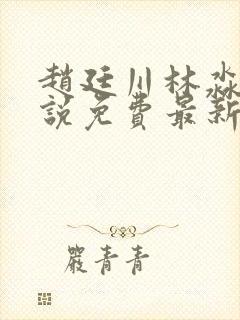 趙廷川林淼
說免費最新
嚴青青